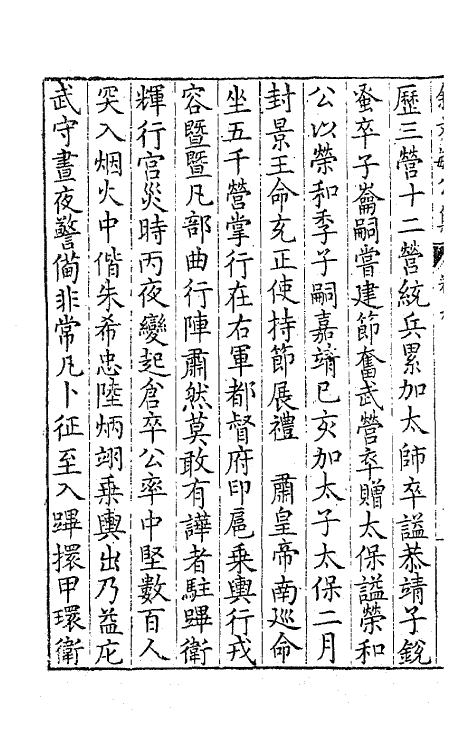 歷三營十二營統兵累加太師卒謚恭靖子銳
蚤卒子崙嗣嘗建節奮武營卒贈太保謚榮和
公以榮和季子嗣嘉靖已亥加太子太保二月
封景王命充正使持節展禮　肅皇帝南廵命
坐五千營掌行在右軍都督府印扈乗輿行戎
容暨暨凡部曲行陣肅然莫敢有譁者駐蹕衛
輝行宫災時丙夜變起倉卒公率中堅數百人
突入烟火中偕朱希忠陸炳翊乗輿出乃益庀
武守晝夜警備非常凡卜征至入蹕擐甲環衛